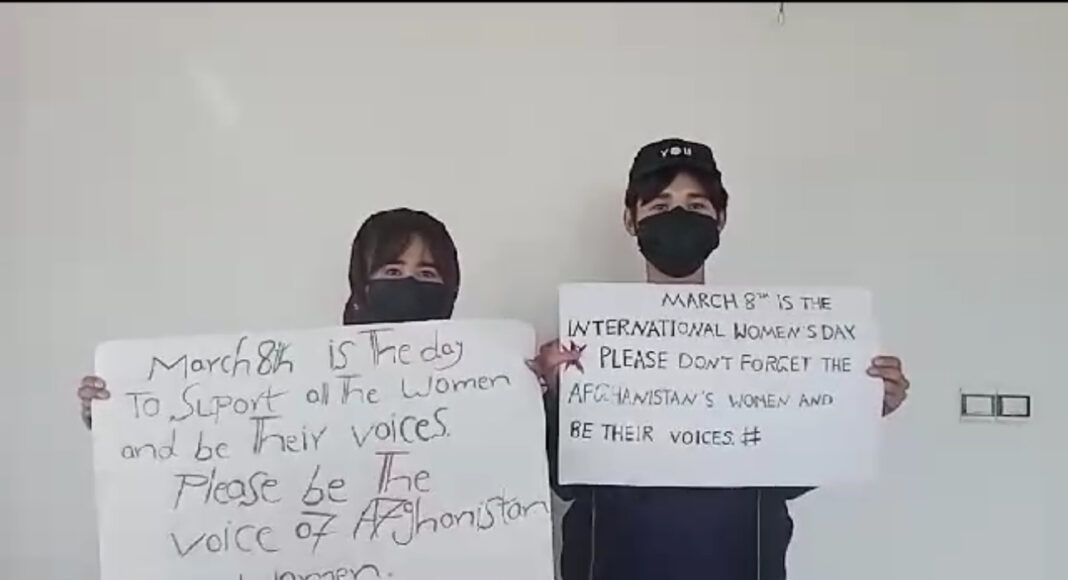 YOU
March 8th is The day
To Suport all The women
and be Their voices.
Please be The
voice of Afghanistan
women.
MARCH 8TH IS THE
INTERNATIONAL WOMEN'S DAY
PLEASE DON'T FORGET THE
AFGHANISTAN'S WOMEN AND
BE THEIR VOICES.#